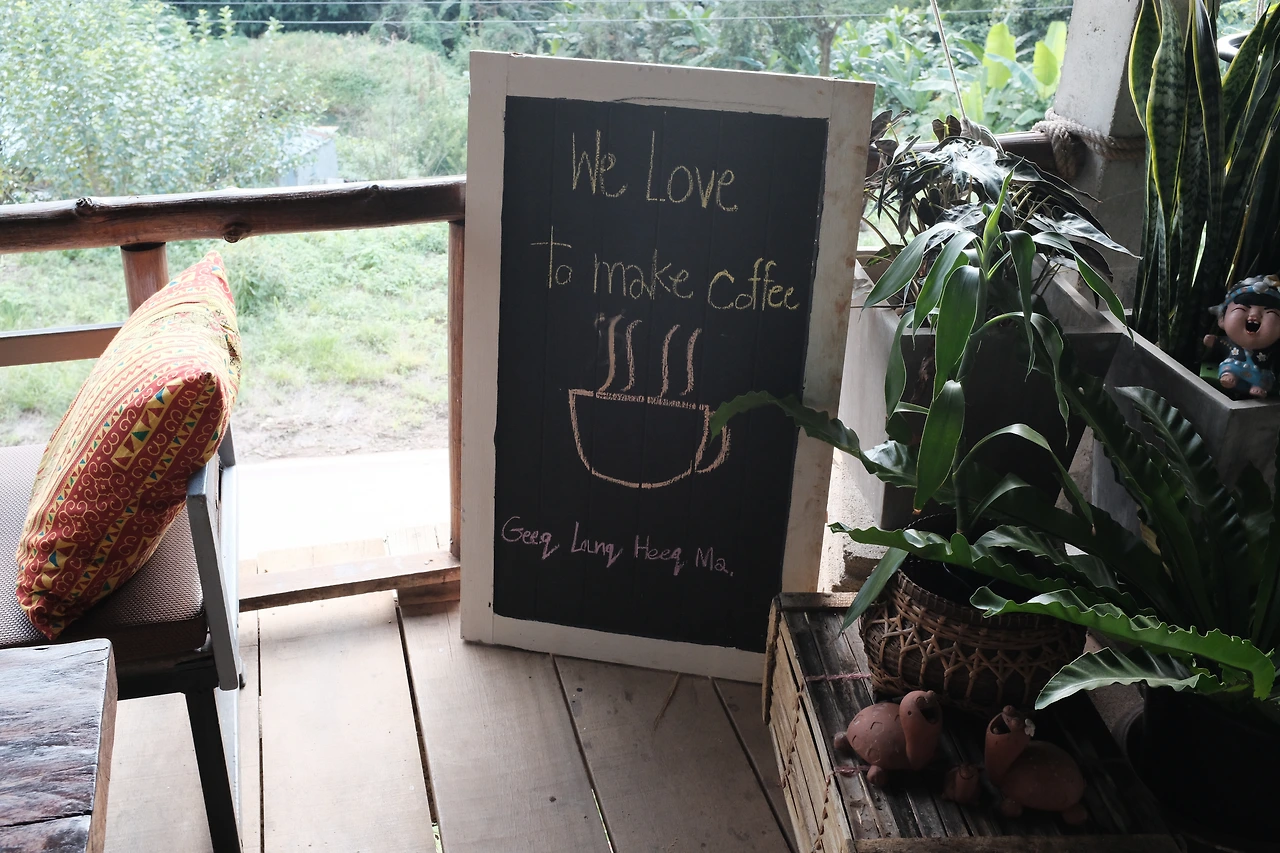 We Love
To make Coffee
Geeq Lang Heeq Ma.